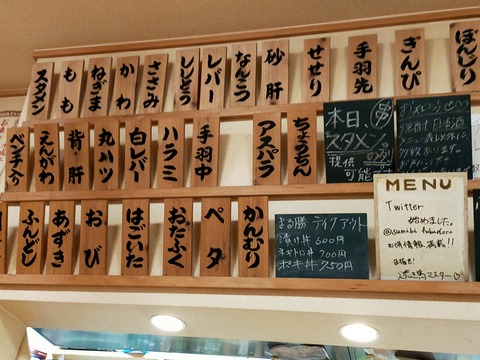 スタメン
もも
ねぎま
かわ
ささみ
ししとう
レバー
なんこつ
砂肝
せせり
手羽先
ぎんぴ
ぼんじり
ベンチ入り
えんがわ
背・肝
丸ハツ
白レバー
ハラミ
手羽中
アスパラ
ちょうちん
本日、
スタメン
のみ
提供
可能
ふんどし
あずき
おび
はごいた
おたふく
ペタ
かんむり
まる勝 テイクアウト
漬け丼 600円
ネギトロ丼 700円
ポキ丼 750円
MENU
Twitter
始めました。
お得情報満載!!